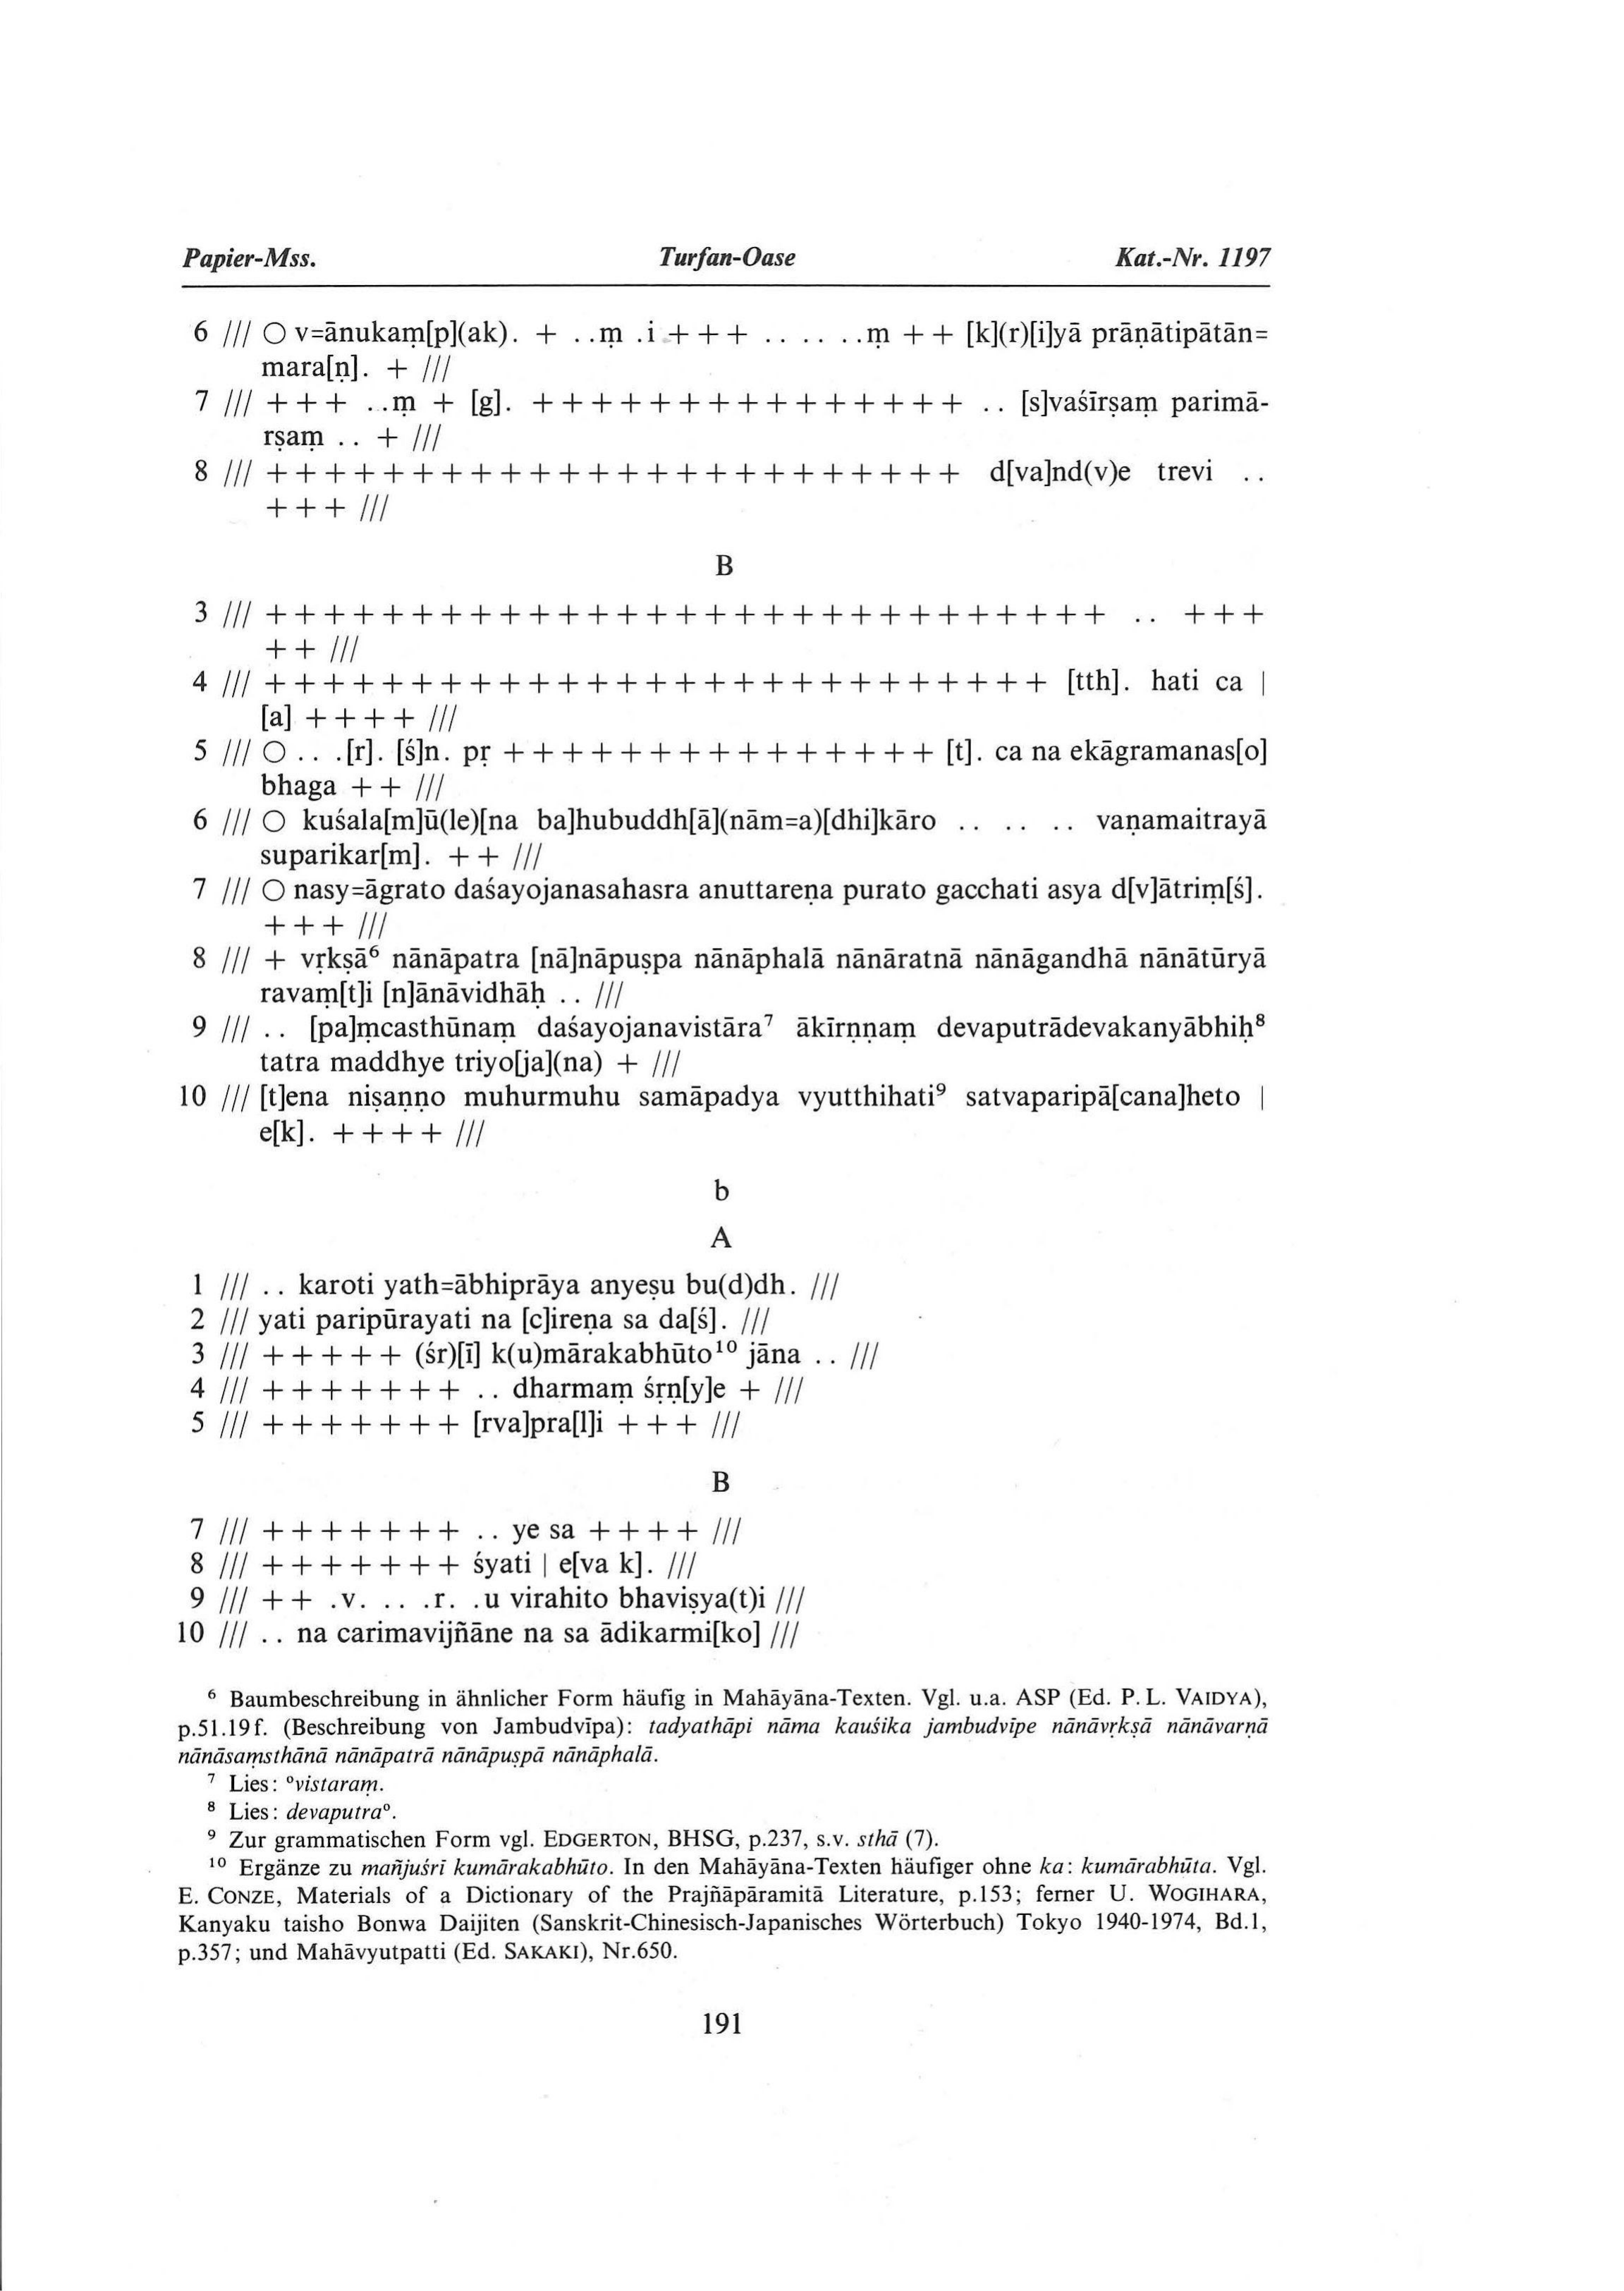 Papier-Mss. Turfan-Oase Kat.-Nr. 1197
6 /// ○ v=ānukaṃ[p](ak). + ..ṃ .i + + + .. .. ..ṃ + + [k](r)[i]yā prāṇātipātān=
mara[ṇ]. + ///
7 /// + + + ..ṃ + [g]. + + + + + + + + + + + + + + + .. [s]vaśīrṣaṃ parimā-
rṣaṃ .. + ///
8 /// + + + + + + + + + + + + + + + + + + + + + + + + d[va]nd(v)e trevi ..
+ + + ///
B
3 /// + + + + + + + + + + + + + + + + + + + + + + + + + + + + + .. + + +
+ + ///
4 /// + + + + + + + + + + + + + + + + + + + + + + + + + + + [tth]. hati ca |
[a] + + + + ///
5 /// ○ .. .[r]. [ś]n. pṛ + + + + + + + + + + + + + + + [t]. ca na ekāgramanas[o]
bhaga + + ///
6 /// ○ kuśala[m]ū(le)[na ba]hubuddh[ā](nām=a)[dhi]kāro .. .. .. vaṇamaitrayā
suparikar[m]. + + ///
7 /// ○ nasy=āgrato daśayojanasahasra anuttareṇa purato gacchati asya d[v]ātriṃ[ś].
+ + + ///
8 /// + vṛkṣā⁶ nānāpatra [nā]nāpuṣpa nānāphalā nānāratnā nānāgandhā nānātūryā
ravaṃ[t]i [n]ānāvidhāḥ .. ///
9 /// .. [pa]ṃcasthūnaṃ daśayojanavistāra⁷ ākīrṇṇaṃ devaputrādevakanyābhiḥ⁸
tatra maddhye triyo[ja](na) + ///
10 /// [t]ena niṣaṇṇo muhurmuhu samāpadya vyutthihati⁹ satvaparipā[cana]heto |
e[k]. + + + + ///
b
A
1 /// .. karoti yath=ābhiprāya anyeṣu bu(d)dh. ///
2 /// yati paripūrayati na [c]ireṇa sa da[ś]. ///
3 /// + + + + + (śr)[ī] k(u)mārakabhūto¹⁰ jāna .. ///
4 /// + + + + + + + .. dharmaṃ śṛṇ[y]e + ///
5 /// + + + + + + + [rva]pra[l]i + + + ///
B
7 /// + + + + + + + .. ye sa + + + + ///
8 /// + + + + + + + śyati | e[va k]. ///
9 /// + + .v. .. .r. .u virahito bhaviṣya(t)i ///
10 /// .. na carimavijñāne na sa ādikarmi[ko] ///
⁶ Baumbeschreibung in ähnlicher Form häufig in Mahāyāna-Texten. Vgl. u.a. ASP (Ed. P. L. VAIDYA),
p.51.19f. (Beschreibung von Jambudvīpa): tadyathāpi nāma kauśika jambudvīpe nānāvṛkṣā nānāvarṇā
nānāsaṃsthānā nānāpatrā nānāpuṣpā nānāphalā.
⁷ Lies: °vistaraṃ.
⁸ Lies: devaputra°.
⁹ Zur grammatischen Form vgl. EDGERTON, BHSG, p.237, s.v. sthā (7).
¹⁰ Ergänze zu mañjuśrī kumārakabhūto. In den Mahāyāna-Texten häufiger ohne ka: kumārabhūta. Vgl.
E. CONZE, Materials of a Dictionary of the Prajñāpāramitā Literature, p.153; ferner U. WOGIHARA,
Kanyaku taisho Bonwa Daijiten (Sanskrit-Chinesisch-Japanisches Wörterbuch) Tokyo 1940-1974, Bd.1,
p.357; und Mahāvyutpatti (Ed. SAKAKI), Nr.650.
191